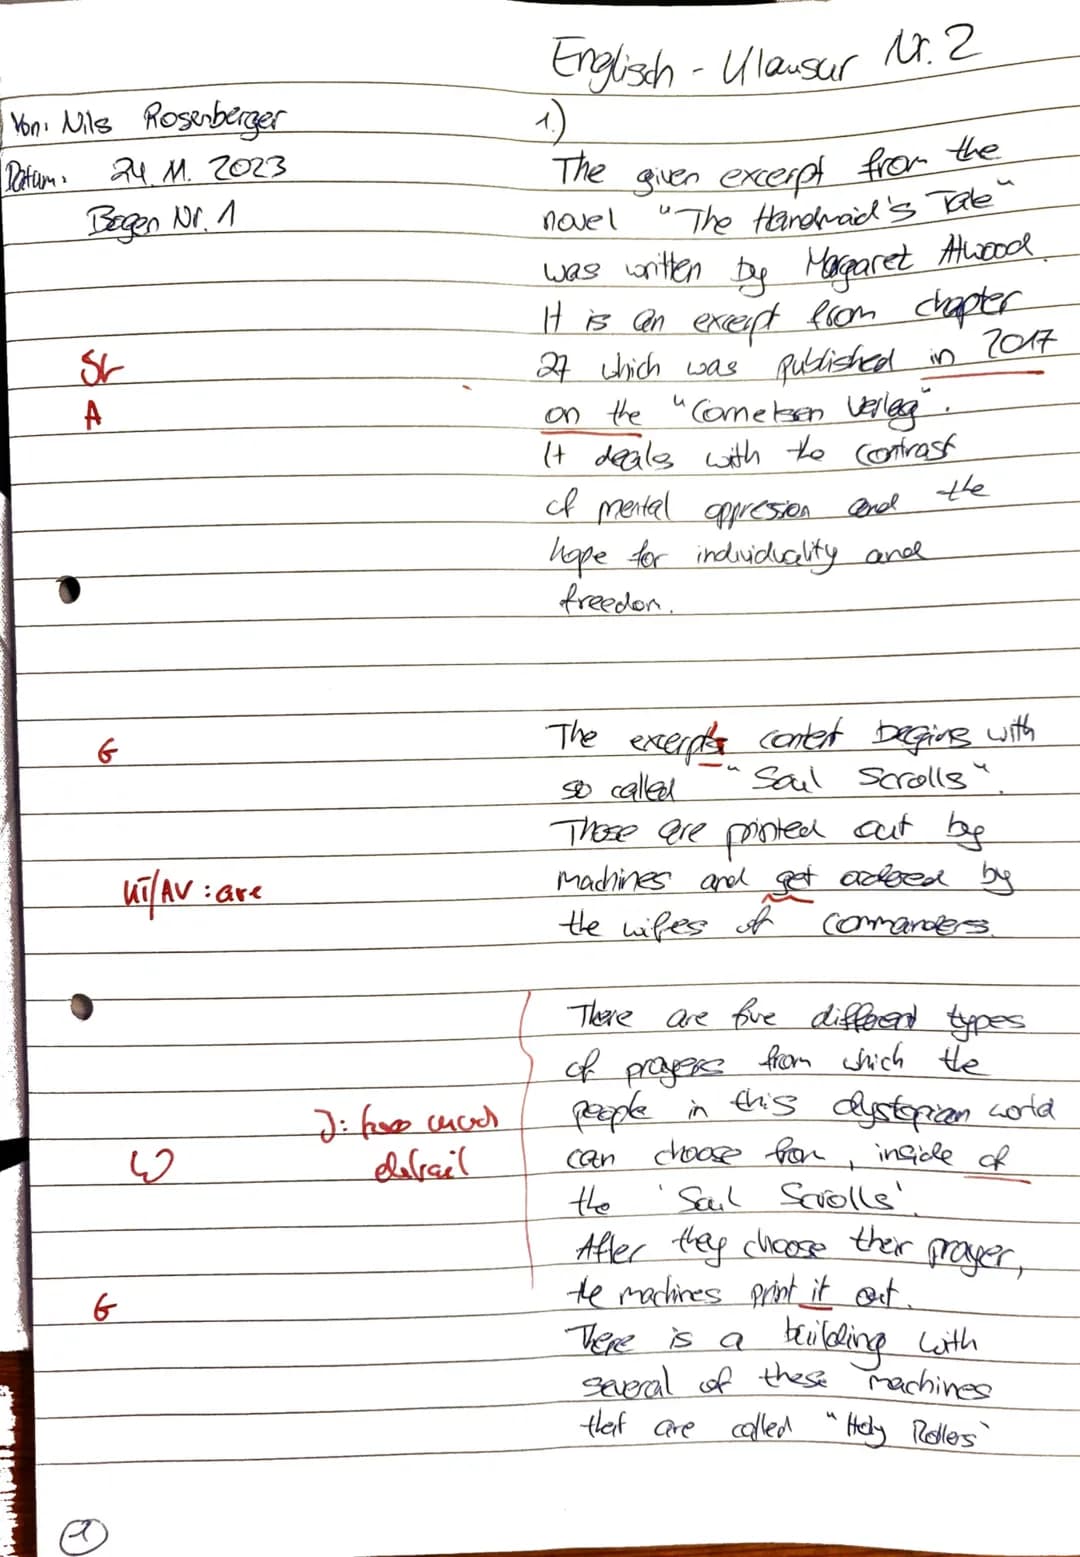 Englisch - Klausur Nr. 2
Von: Nils Rosenberger
Datum: 24. 11. 2023
Bogen Nr. 1
1.)
The given excerpt from the
novel "The Handmaid's Tale"
was written by Margaret Atwood.
It is an excerpt from chapter
27 which was published in 2017
St
on the "Cornelsen Verlag".
A
It deals with the contrast
of mental oppresion and the
hope for individuality and
freedom.
The excerpts content begins with
G
so called "Soul Scrolls".
Those are printed out by
machines and get ordered by
UT/AV: are
the wifes of Commanders.
There are five different types
of prayers from which the
people in this dystopian world
J: too much
can choose from, inside of
detail
W
the 'Soul Scrolls'.
After they choose their prayer,
the machines print it out.
G
There is a building with
several of these machines
that are called "Holy Rollers"
1